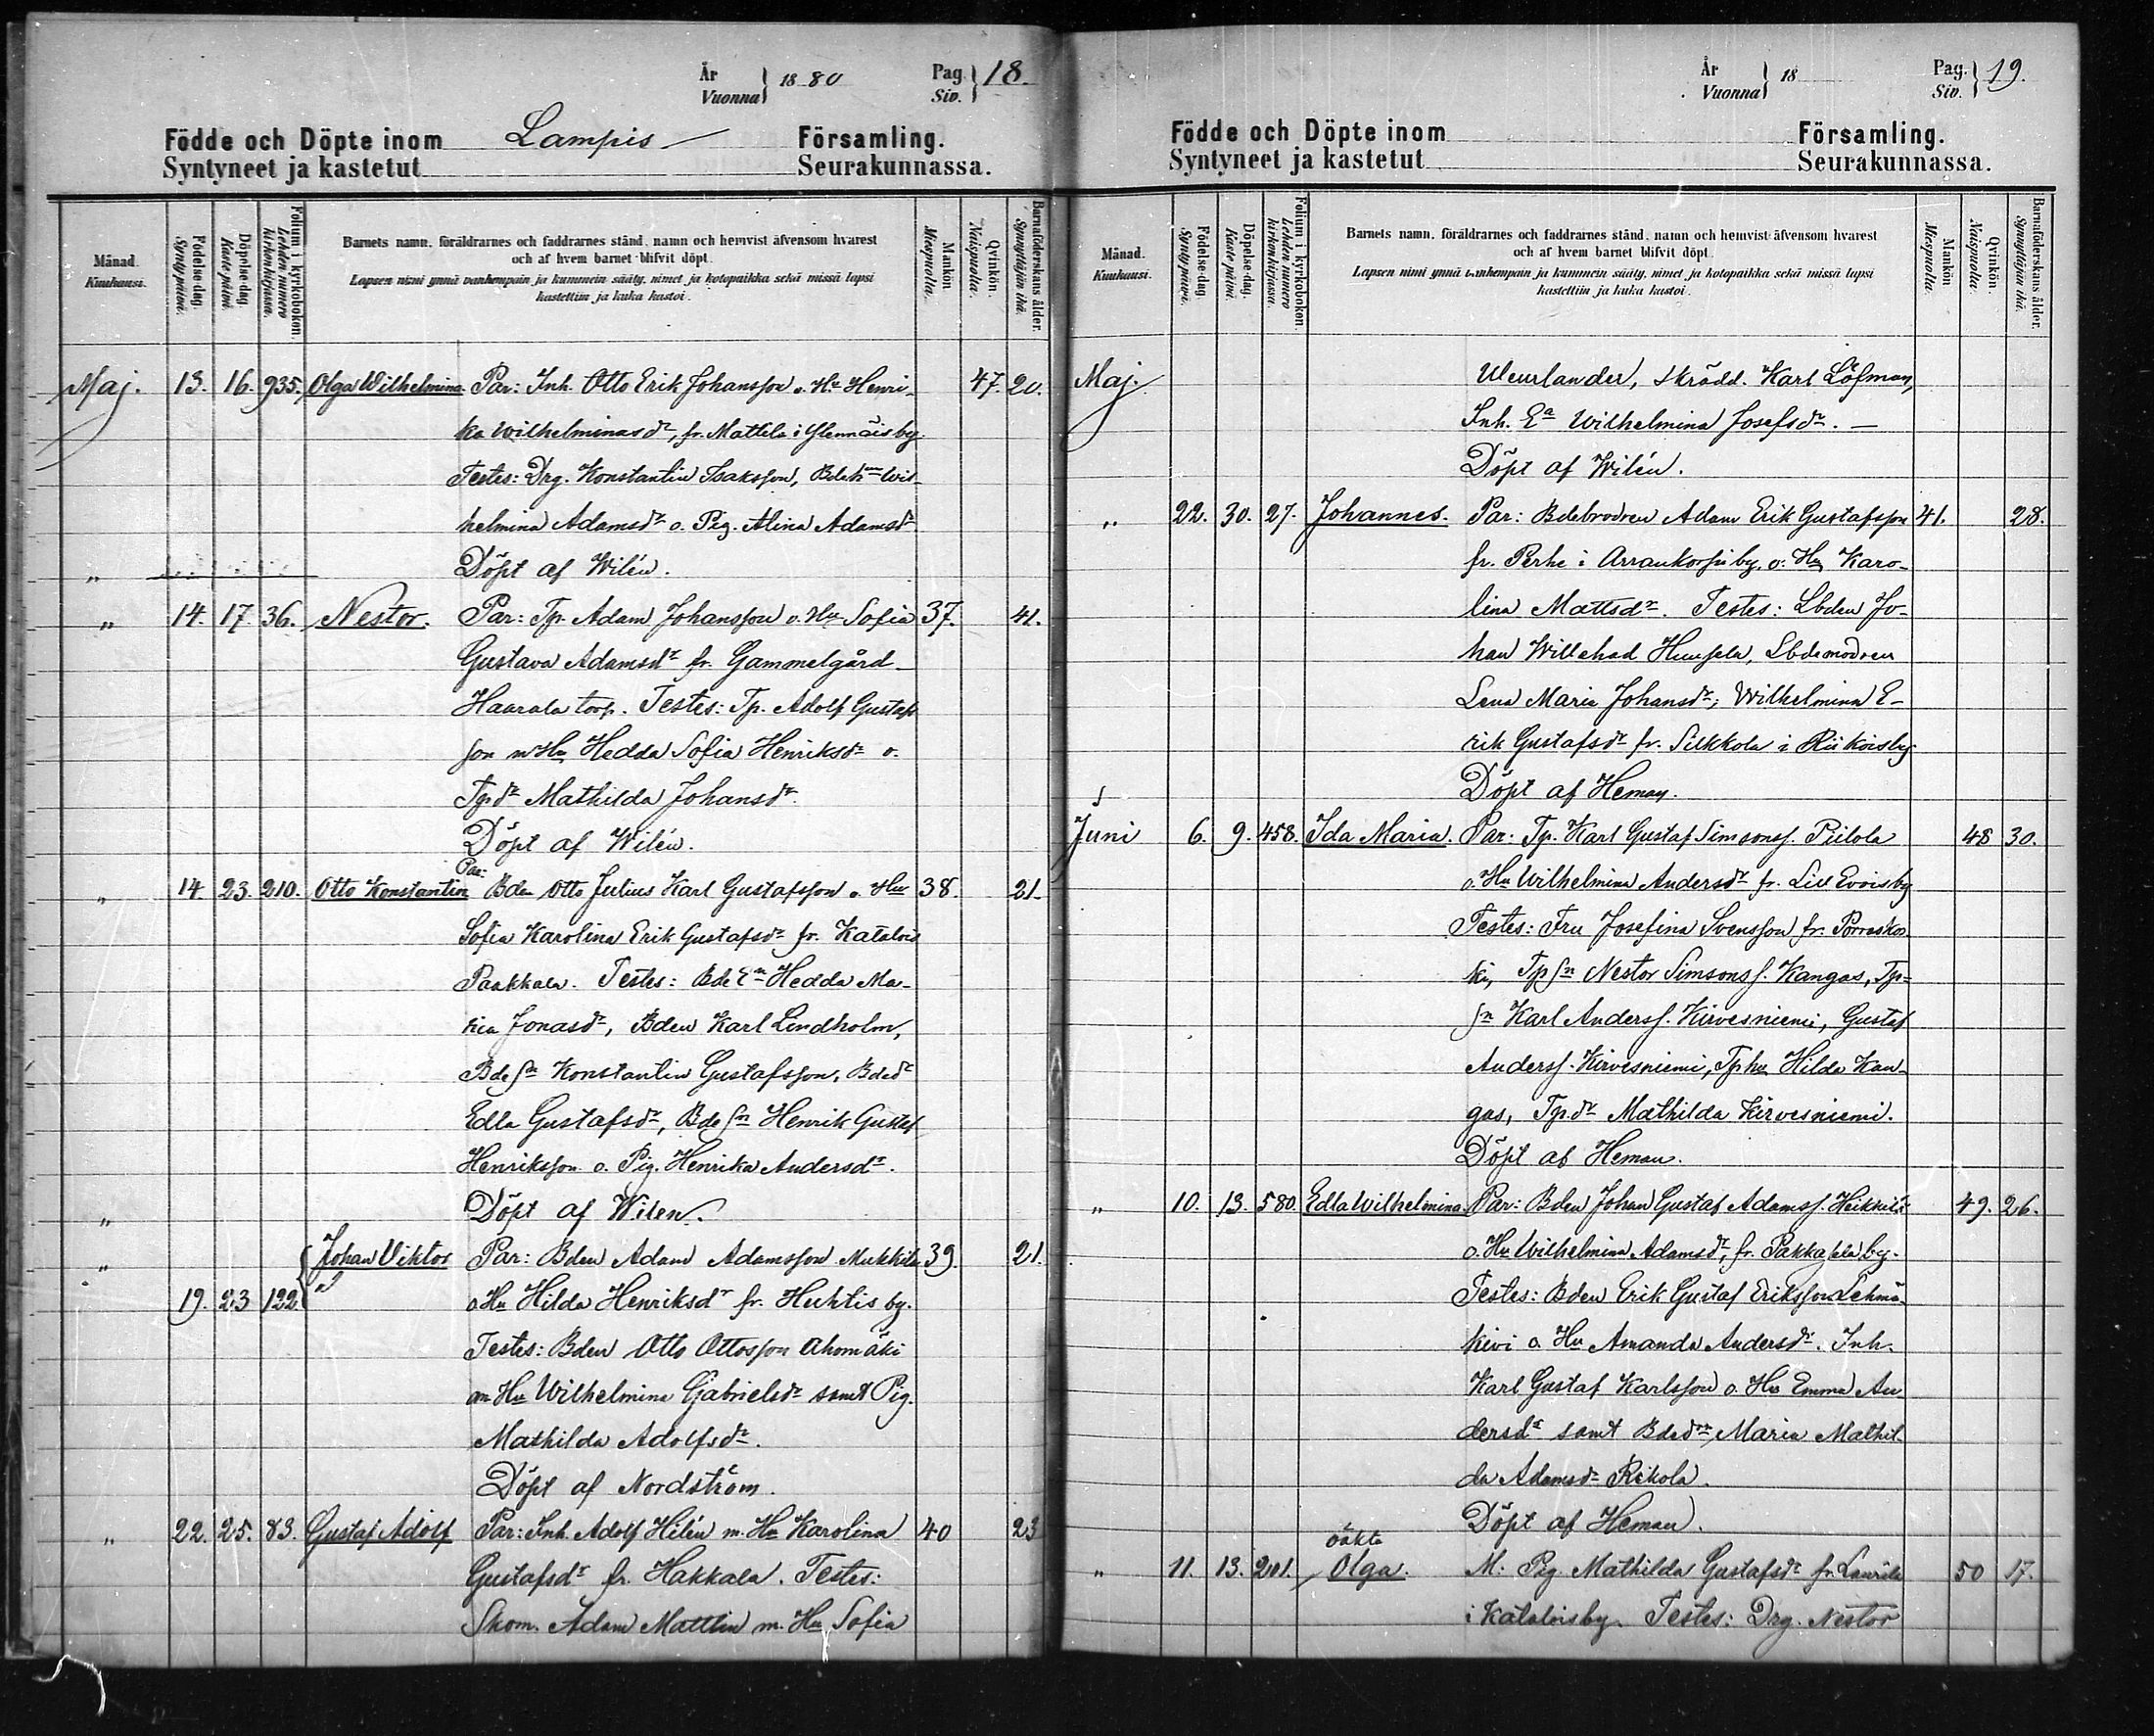 År
Vuonna 1880 Pag. Siv. 18.
Födde och Döpte inom Lampis Församling.
Syntyneet ja kastetut Seurakunnassa.
Månad. Kuukausi.
Födelse-dag. Syntypäivä.
Döpelse-dag. Kastepäivä.
Folium i kyrkoboken. Lehden numero kirkonkirjassa.
Barnets namn, föräldrarnes och faddrarnes stånd, namn och hemvist äfvensom hvarest
och af hvem barnet blifvit döpt.
Lapsen nimi ynnä vanhempain ja kummein sääty, nimet ja kotopaikka sekä missä lapsi
kastettiin ja kuka kastoi.
Mankön Miespuolia.
Qvinkön. Naispuolia.
Barnaföderskans ålder. Synnyttäjän ikä.
Maj. 13. 16. 935. Olga Wilhelmina Par: Inh. Otto Erik Johansson o. Hu Henri- 47. 20.
ka Wilhelminasdr, fr. Mattila i by.
Testes: Drg. Konstantin Isaksson, Wil-
helmina Adamsdr o. Pig. Alina Adamsdr
Döpt af Wilén.
„
„ 14. 17. 36. Nestor. Par: Tp. Adam Johansson o. Hu Sofia 37. 41.
Gustava Adamsdr fr. Gammelgård
Haarala torp. Testes: Tp. Adolf Gustafs
son m Hu Hedda Sofia Henriksdr o.
Tpdr Mathilda Johansdr.
Döpt af Wilén.
„ 14. 23. 210. Otto Konstantin Par: Bden Otto Julius Karl Gustafsson o. Hu 38. 21.
Sofia Karolina Erik Gustafsdr fr. Katalois
Paakkala. Testes: Bde Ea Hedda Ma-
ria Jonasdr, Bden Karl Lindholm,
Bde sn Konstantin Gustafsson, Bdedr
Edla Gustafsdr, Bde sn Henrik Gustaf
Henriksson o. Pig. Henrika Andersdr.
„ Döpt af Wilen.
„ Johan Viktor Par: Bden Adam Adamsson Mukkila 39. 21.
19. 23 122 o. Hu Hilda Henriksdr fr. Huhtis by.
Testes: Bden Otto Ottosson Ahomäki
m Hu Wilhelmina Gabrielsdr samt Pig.
Mathilda Adolfsdr.
Döpt af Nordström.
„ 22. 25. 83. Gustaf Adolf Par: Inh. Adolf Hilén m. Hu Karolina 40 23
Gustafsdr fr. Hakkala. Testes:
Skom. Adam Mattlin m. Hu Sofia
År
Vuonna 18 Pag. Siv. 19.
Födde och Döpte inom Församling.
Syntyneet ja kastetut Seurakunnassa.
Månad. Kuukausi.
Födelse-dag. Syntypäivä.
Döpelse-dag. Kastepäivä.
Folium i kyrkoboken. Lehden numero kirkonkirjassa.
Barnets namn, föräldrarnes och faddrarnes stånd, namn och hemvist äfvensom hvarest
och af hvem barnet blifvit döpt.
Lapsen nimi ynnä vanhempain ja kummein sääty, nimet ja kotopaikka sekä missä lapsi
kastettiin ja kuka kastoi.
Mankön Miespuolia.
Qvinkön. Naispuolia.
Barnaföderskans ålder. Synnyttäjän ikä.
Maj. skrädd. Karl Löfman,
Inh. Ea Wilhelmina Josefsdr. —
Döpt af Wilén.
„ 22. 30. 27. Johannes. Par: Bdebrodren Adam Erik Gustafsson 41. 28.
fr. Perhe i Arrankorpi by. o. Hu Karo-
lina Mattsdr. Testes: Lbden Jo-
han Willehad Lbdemodren
Lena Maria Johansdr; Wilhelmina E-
rik Gustafsdr fr. Silkkola i by.
Döpt af Heman.
Juni 6. 9. 458. Ida Maria. Par: Tp. Karl Gustaf Simonss. Piilola 48 30.
o. Hu Wilhelmina Andersdr fr. Lill Evois by
Testes: Fru Josefina Svensson fr. Porraskos-
ki, Tp sn Nestor Simsonss. Kangas, Tp-
sn Karl Anderss. Kirvesniemi, Gustaf
Anderss. Kirvesniemi, Tp hu Hilda Kan-
gas, Tp.dr Mathilda Kirvesniemi.
Döpt af Heman.
„ 10. 13. 580. Edla Wilhelmina Par: Bden Johan Gustaf Adamss. Heikkilä 49. 26.
o. Hu Wilhelmina Adamsdr, fr. by.
Testes: Bden Erik Gustaf Eriksson Lehmä-
kivi o. Hu Amanda Andersdr. Inh.
Karl Gustaf Karlsson o. Hu Emma An
dersdr samt Bdedr Maria Mathil-
da Adamsdr Rekola.
Döpt af Heman.
„ 11. 13. 201. oäkta Olga. M: Pig. Mathilda Gustafsdr fr. Laurila 50 17.
i Kataloisby. Testes: Drg. Nestor